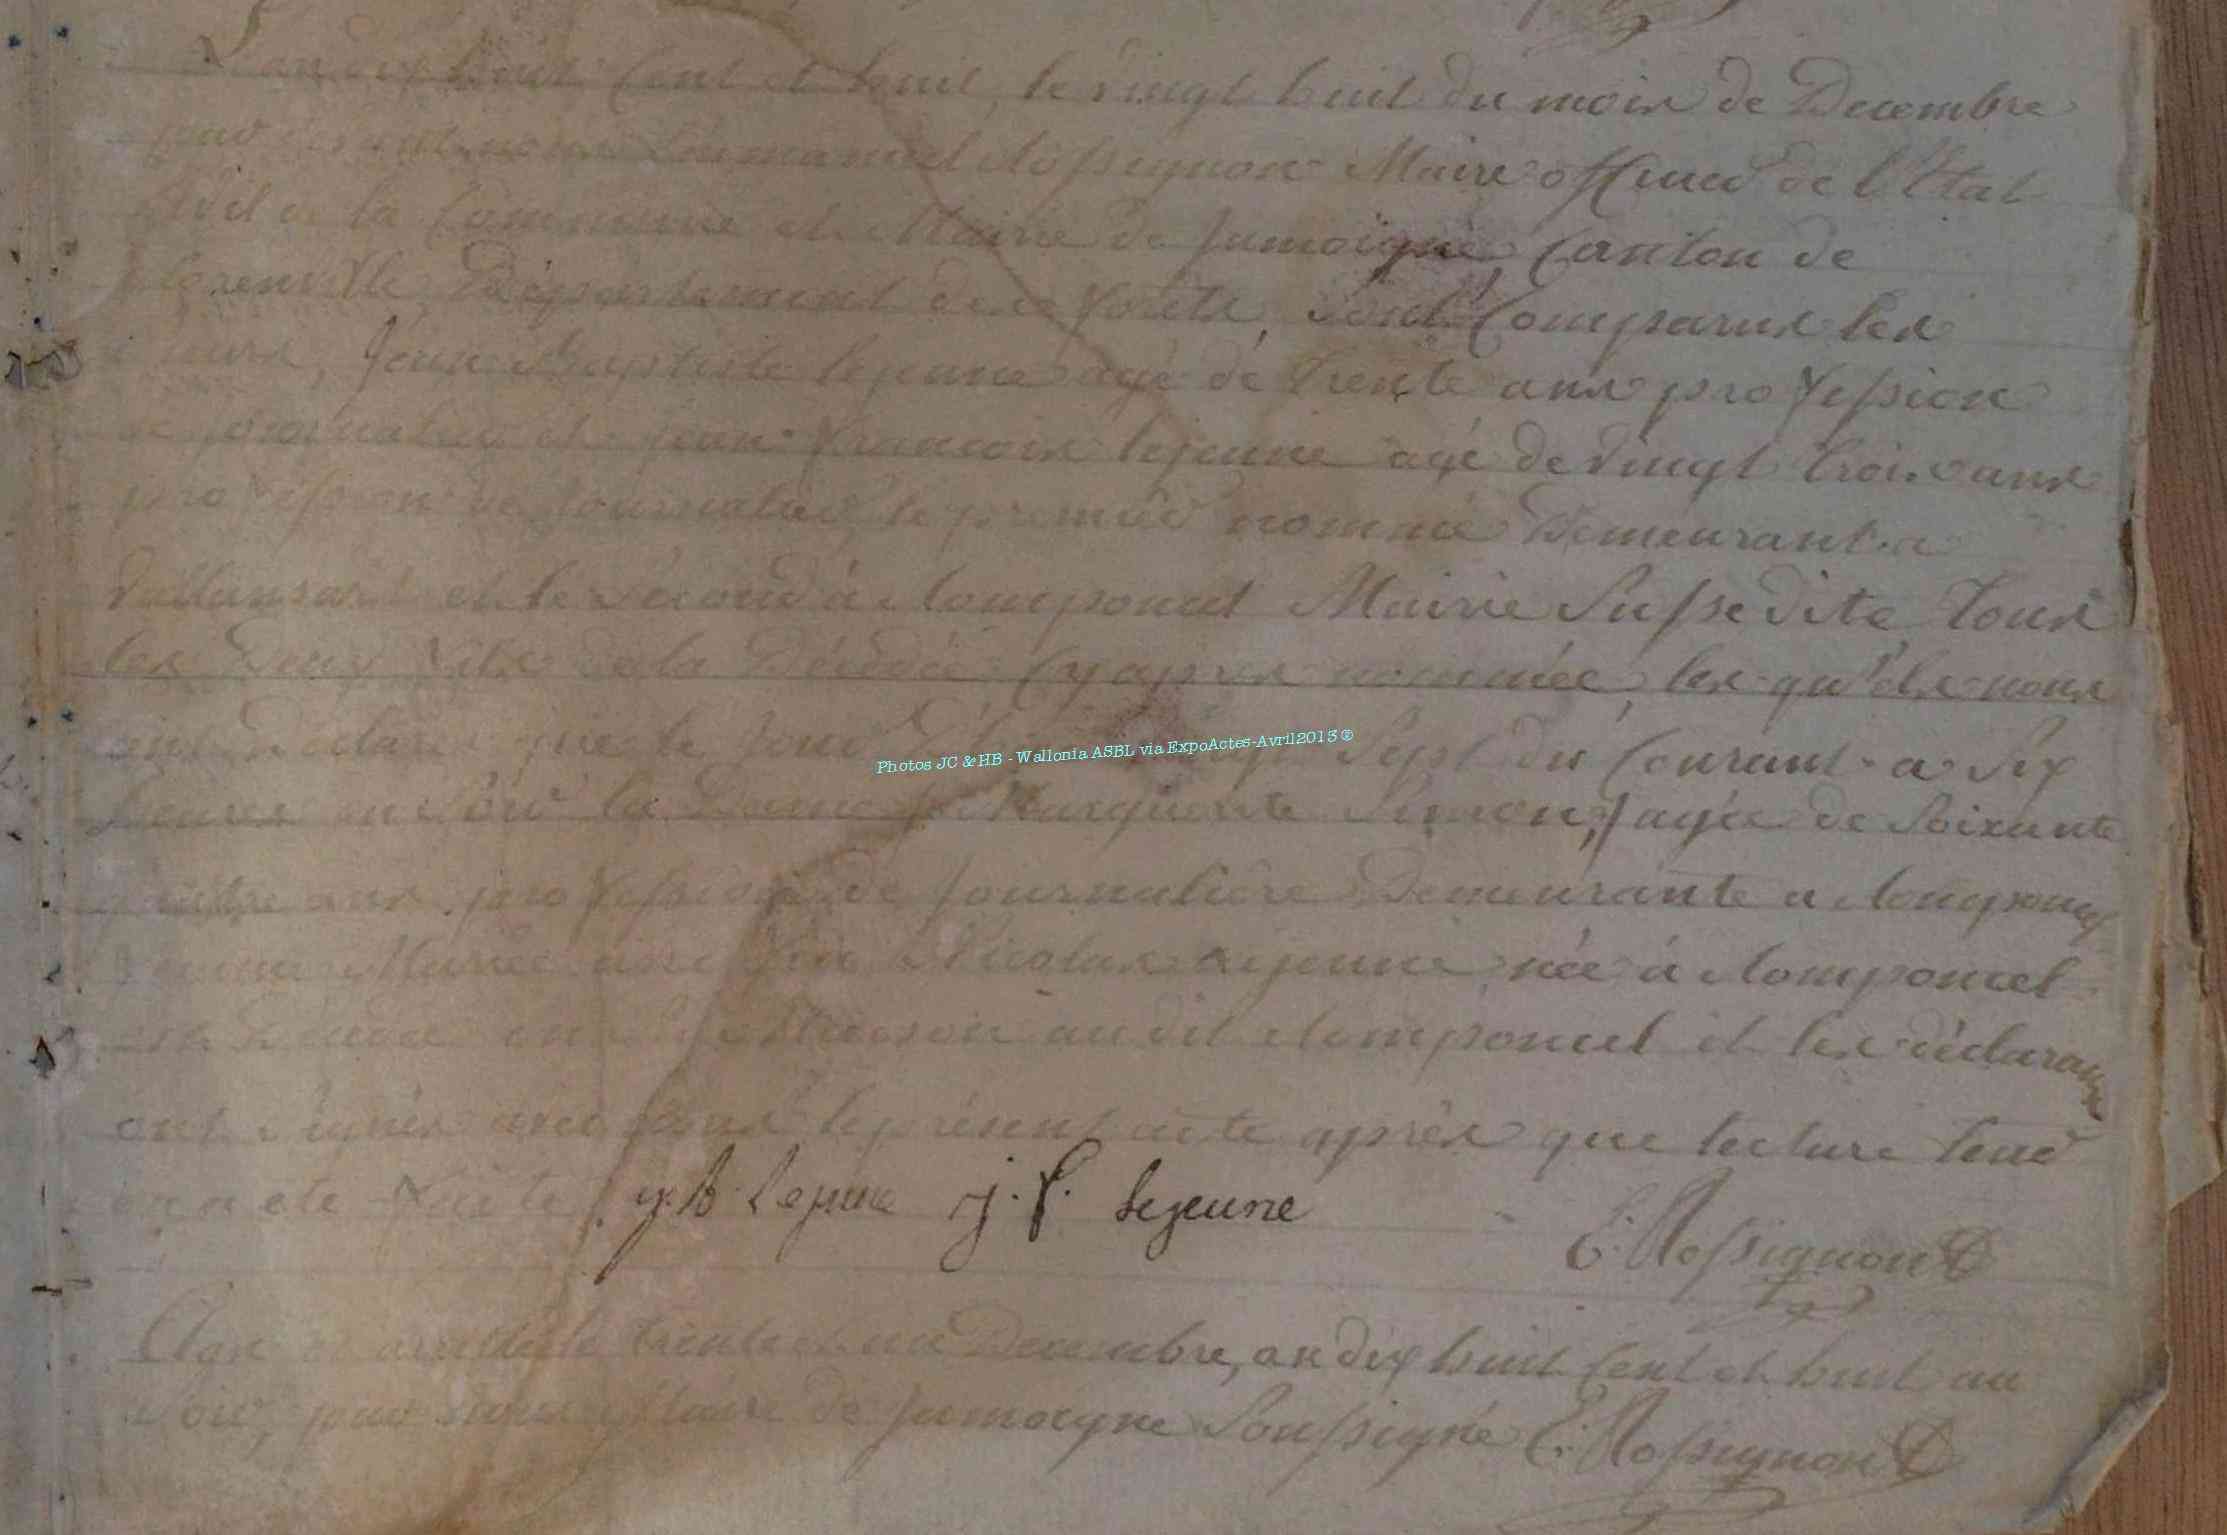 L'an dix huit Cent et huit, le vingt huit du mois de Decembre
par devant nous Emmanuel Rossignon Maire officier de l'Etat
Civil de la Commune et Mairie de Jamoigne, Canton de
florenville Département des forêts, sont Comparus les
Jean Baptiste lejeune agé dé trente ans profession
de journalier et jean françois lejeune agé de vingt trois ans
profession de journalier, le premier nommé Demeurant a
et le second á Romponcel Mairie Susse dite, tous
les Deux fils de la Décédée Cy apres nommée, les qu'els nous
ont Déclaré que le vingt Sept du Courant a Six
heures du soir la Dame Marguerite Simon, agée de Soixante
quatre ans profession de Journaliere Demeurante a Romponcel
Nicolas Lejeune née á Romponcel
en Sa Maison au dit Romponcel et les déclarans
ont signés avec nous le présent acte après que lecture leur
en a été faite J. B. Lejeune J. f. Lejeune
E: Rossignon
Clos et arrêté le trente et un Decembre, an dix huit Cent et huit au
Soir, par nous Maire de Jamoigne Soussigné E: Rossignon
Photos JC & HB - Wallonia ASBL via ExpoActes-Avril2013 ®